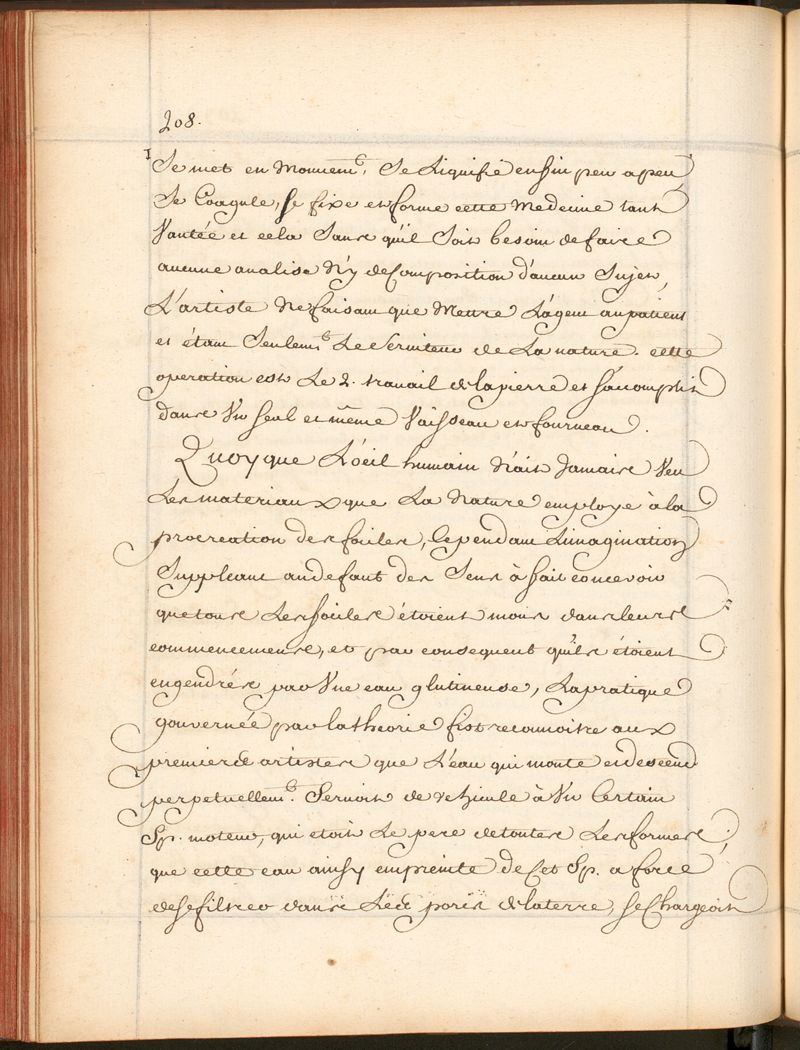 208.
Se met en Mouuem.t, Se Liquifie ensin peu a peu
Se Coagule, se fixe et forme cette Medecine tant
Vantée et cela Sans qu'il Soit besoin de faire
aucune analise N'y deComposition d'aucun Sujet,
L'artiste Ne faisant que Mettre L'agent au patient
et étant Seulem.t Le Seruiteur de La nature. cette
operation est Le 2. travail de la pierre et s'acomplit
dans Vn seul et même Vaisseau et fourneau.
Quoy que L'oeil humain N'ait Jamais Veu
Les materiaux que La Nature employe à la
procreation des fosiles, Cependant L'imagination
Suppleant au defaut des Sens à fait conceuoir
que tous Les fosiles étoient mous dans leurs
commencemens, et par consequent qu'ils étoient
engendrés par Vne eau glutineuse, La pratique
gouvernée par la theorie fist reconnoitre aux
premiers artistes que L'eau qui monte et descend
perpetuellem.t Seruoit de vehicule à Vn Certain
Sp. moteur, qui etoit Le pere de toutes Les formes,
que cette eau ainsy empreinte de Cet Sp. a force
de se filtrer dans Les pores de la terre, se Chargeoit